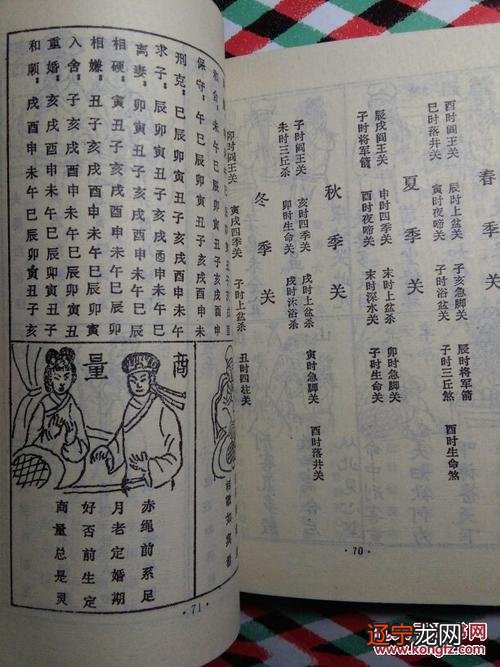 春季关
酉时阎王关 辰时上盆煞 子亥急脚关 辰时将军箭 酉时生命煞
巳时落井关 子时浴盆关 子时三丘煞
夏季关
辰戌阎王关 申时四季关 末时上盆杀 卯时急脚关
子时将军箭 酉时夜啼关 末时深水关 子时生命关
秋季关
子时阎王关 亥时四季关 戌时上盆杀 寅时急脚关 酉时落井关
未时三丘关 卯时生命关 戌时沐浴杀
冬季关
卯时阎王关 寅戌四季关 子时上盆杀 丑时四柱关
·70·
保守：午巳辰卯寅丑子亥戌酉申未
刑克：巳辰卯寅丑子亥戌酉申未午
求子：辰卯寅丑子亥戌酉申未午巳
离妻：卯寅丑子亥戌酉申未午巳辰
相硬：寅丑子亥戌酉申未午巳辰卯
相嫌：丑子亥戌酉申未午巳辰卯寅
入舍：子亥戌酉申未午巳辰卯寅丑
重婚：亥戌酉申未午巳辰卯寅丑子
和顺：戌酉申未午巳辰卯寅丑子亥
商量
赤绳前系足
月老定婚期
好否前生定
商量总是灵
·71·
辽宁龙网
www.kongfz.com